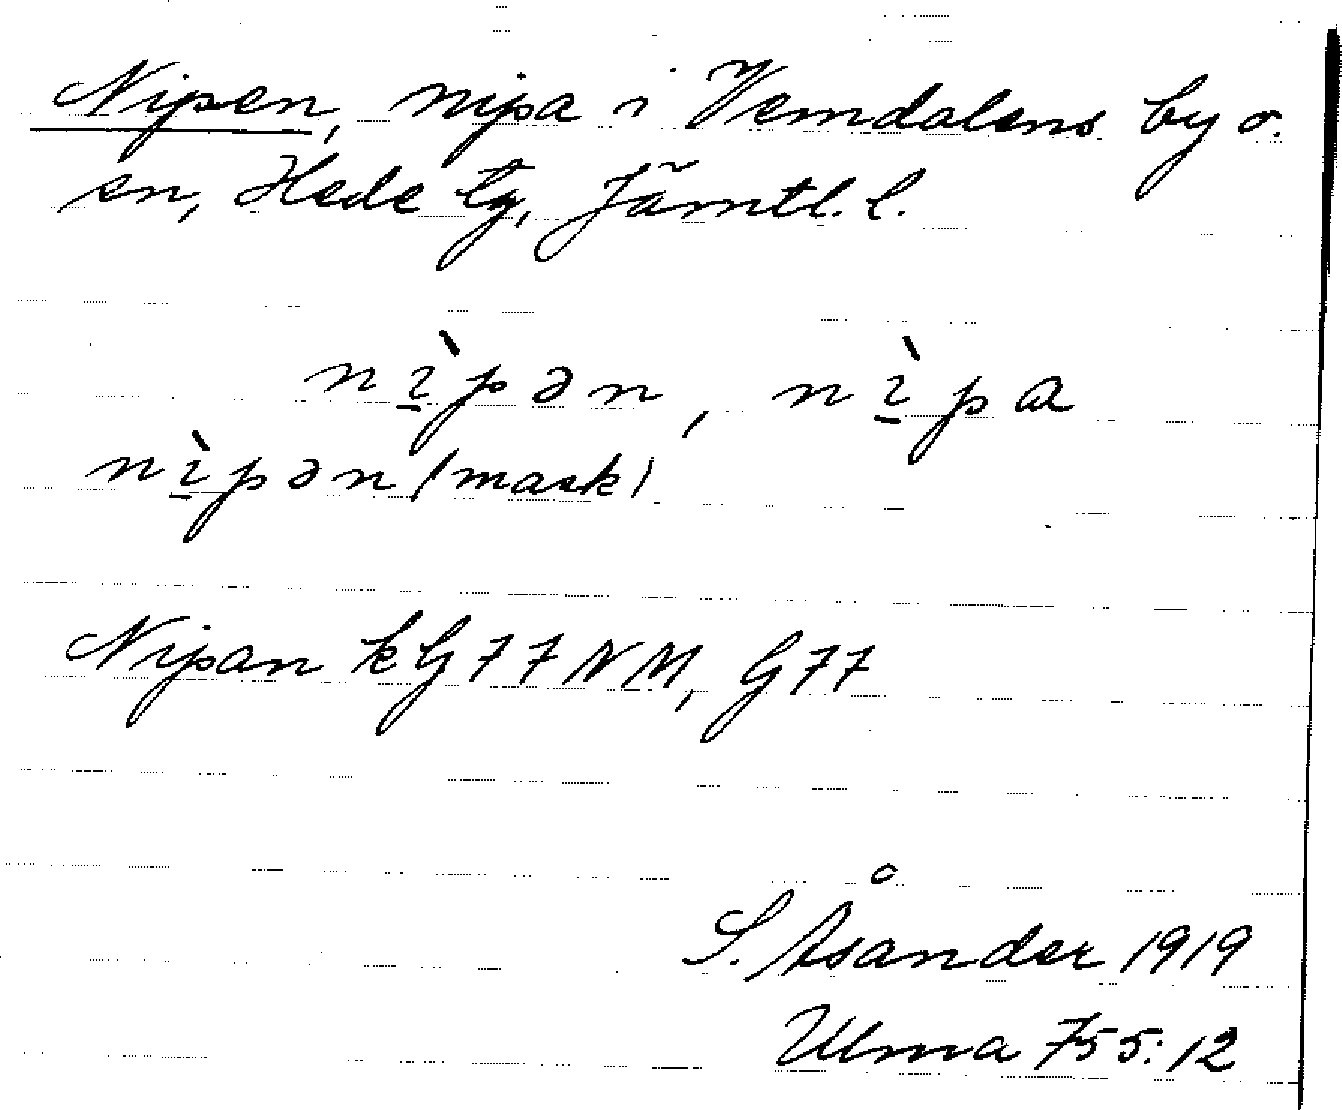 Nipen, nipa i Vemdalens by o.
sn, Hede tg, Jämtl. l.
nı̱̀pən, nı̱̀pa
nı̱̀pən (mask)
Nipan kG77NM, G77
S. Åsander 1919
Ulma 755:12